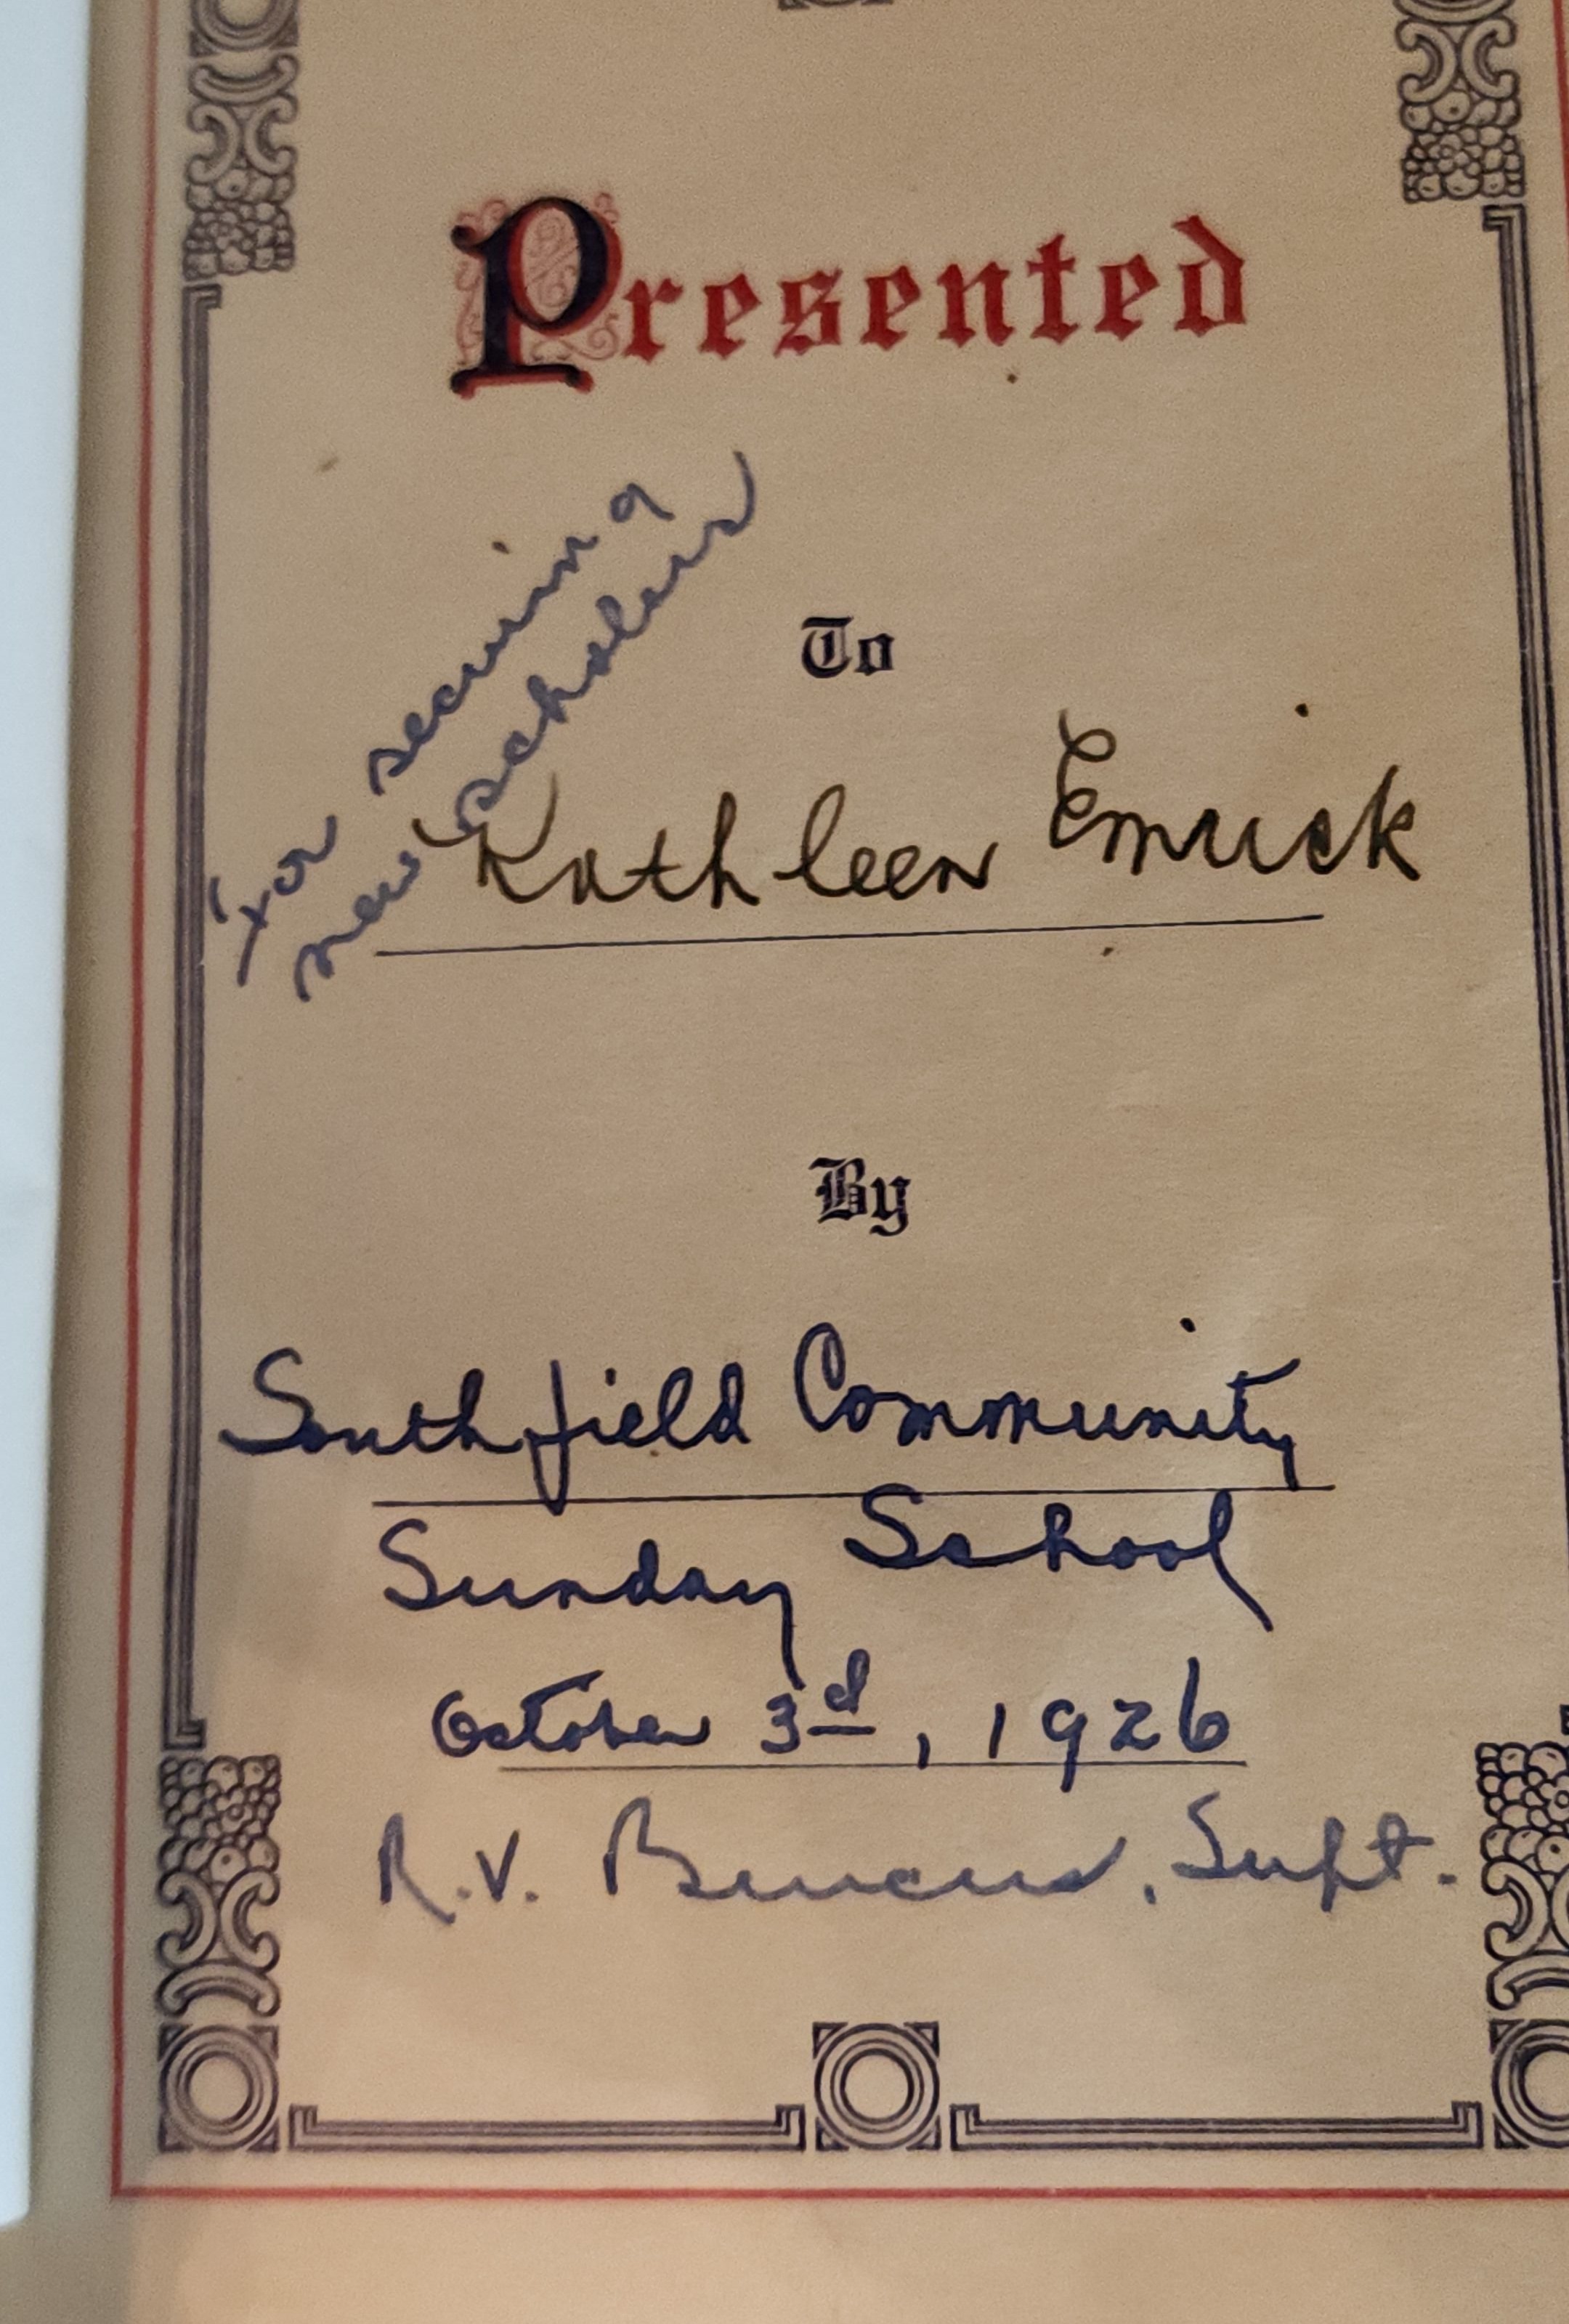 Presented
For securing a
new scholar
To
Kathleen Emrick
By
Southfield Community
Sunday School
October 3d, 1926
R.V. Supt.